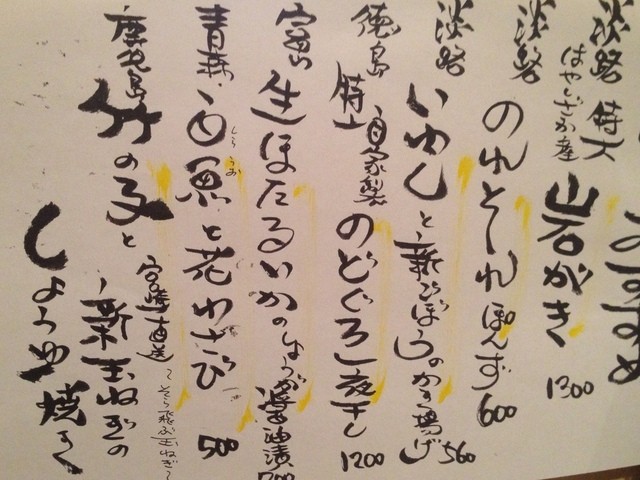 おすすめ
淡路 特大
はやしざか産
岩がき 1300
淡路 のれとれぽんず 600
淡路 いわしと新ごぼうのかき揚げ 560
徳島 特上 自家製 のどぐろ一夜干し 1200
富山 生ほたるいかのしょうが醤油漬 700
青森 白魚と花わさび 500
しらうお
鹿児島 竹の子と
宮崎直送
～そら飛ぶ玉ねぎ～
新玉ねぎの
しょうゆ焼き